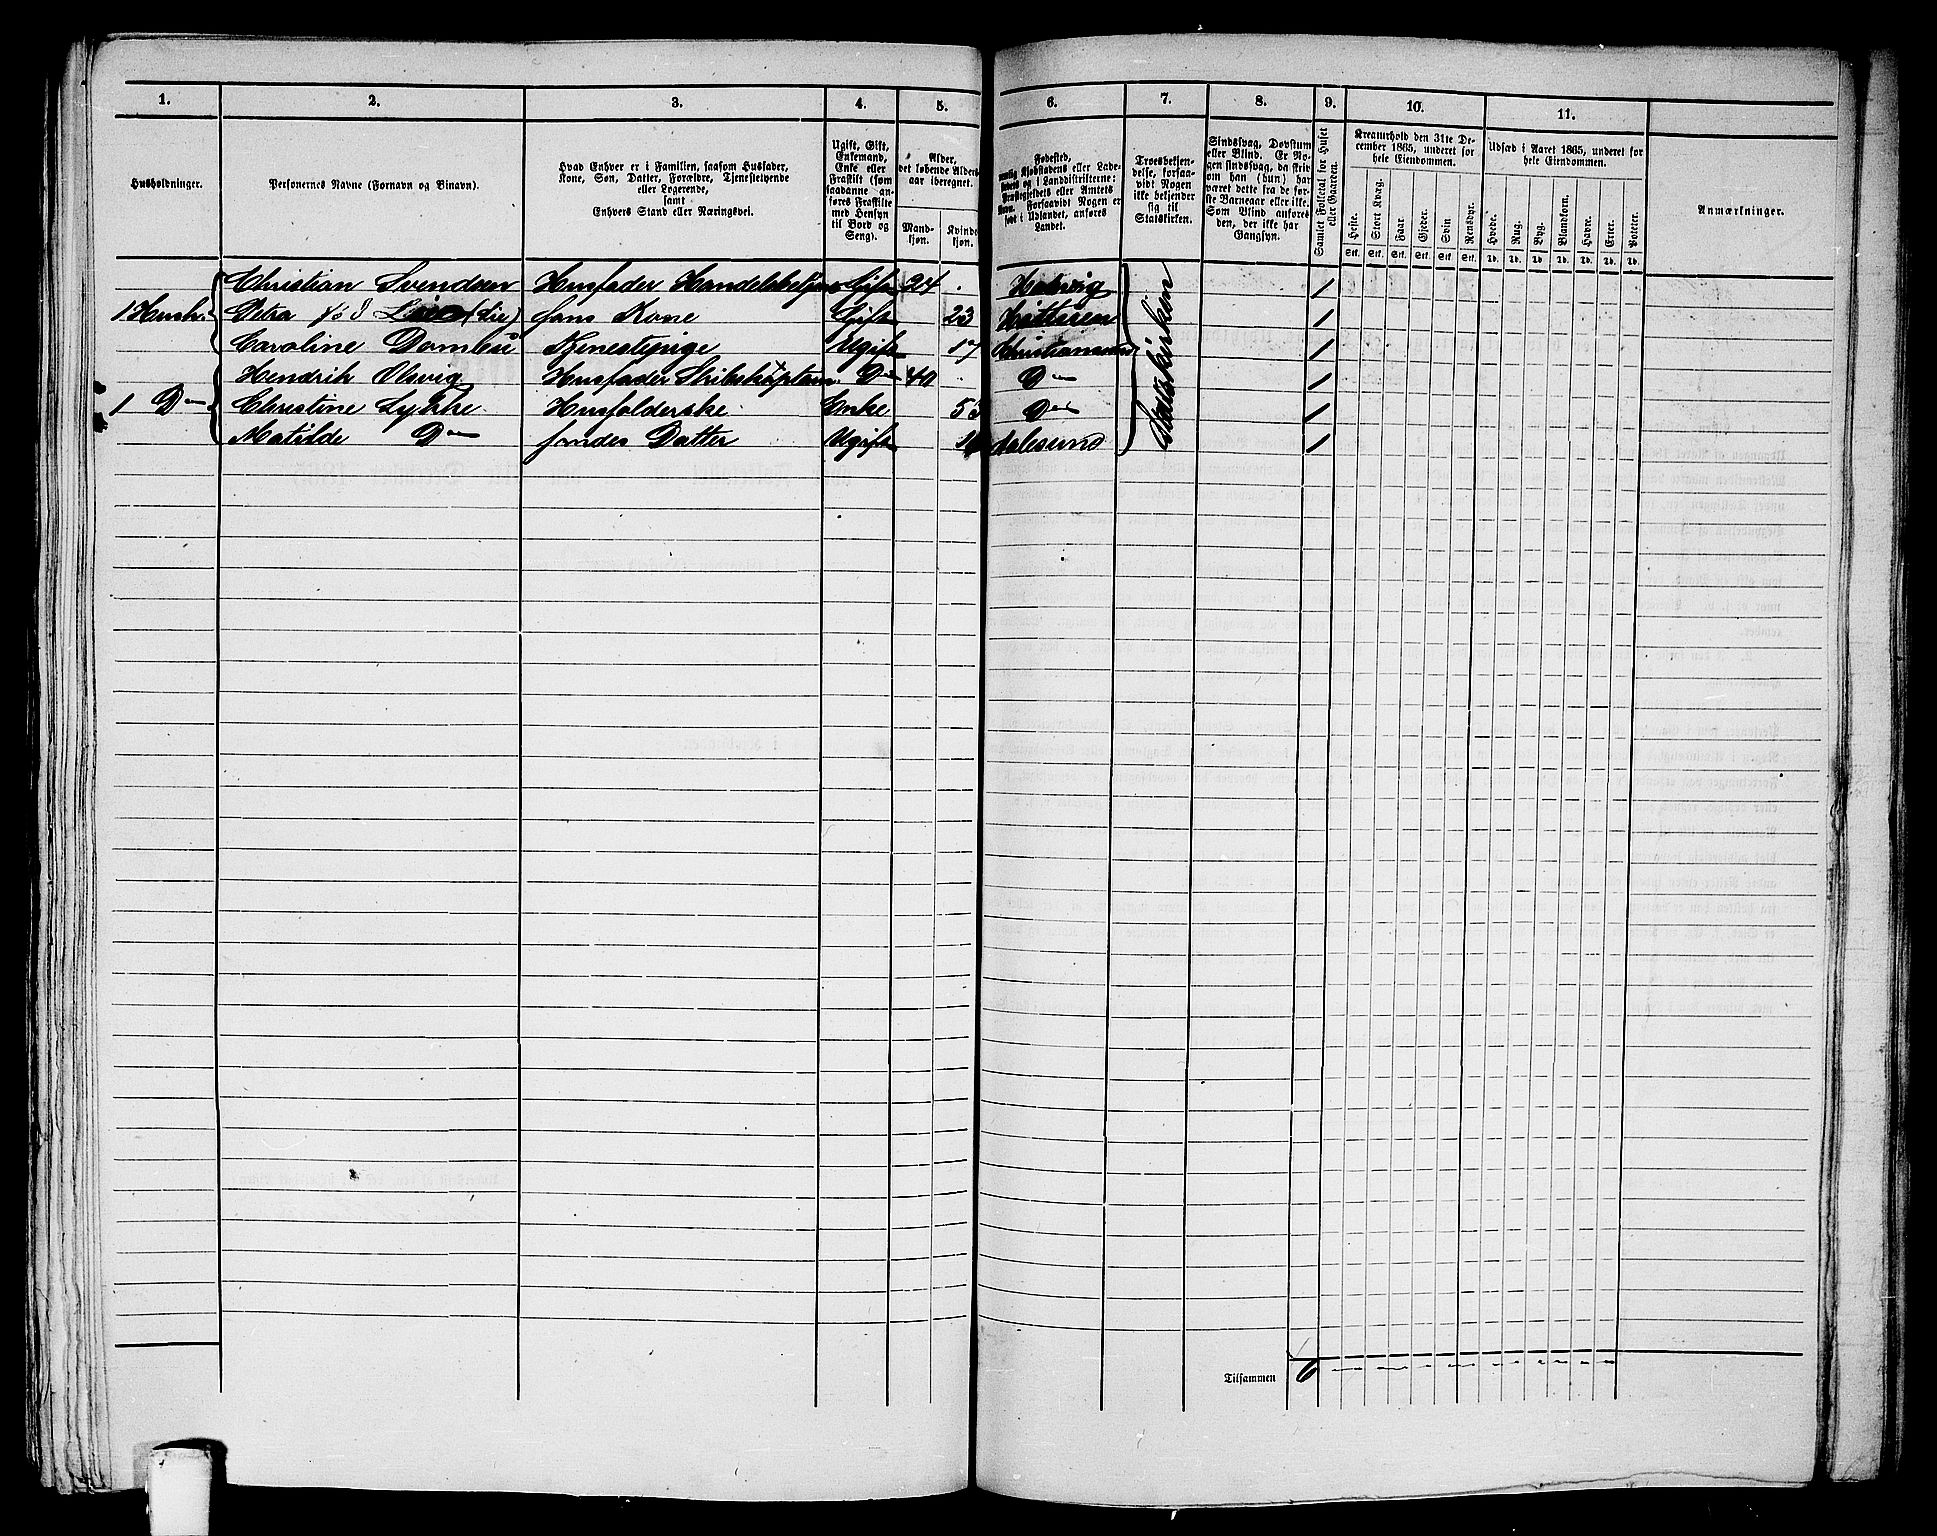 1. 2. 3. 4. 5. 6. 7. 8. 9. 10. 11.
Husholdninger.
Personernes Navne (Fornavn og Binavn).
Hvad Enhver er i Familien, saasom Husfader,
Kone, Søn, Datter, Forældre, Tjenestetyende
eller Logerende,
samt
Enhvers Stand eller Næringsvei.
Ugift, Gift,
Enkemand,
Enke eller
Fraskilt (som
saadanne an-
føres Fraskilte
med Hensyn
til Bord og
Seng).
Alder,
det løbende Alders-
aar iberegnet.
Mand-
kjøn.
Kvinde-
kjøn.
Fødested,
nemlig Kjøbstadens eller Lade-
stedets og i Landdistrikterne:
Præstegjeldets eller Amtets
Navn. Forsaavidt Nogen er
født i Udlandet, anføres
Landet.
Troesbekjen-
delse, forsaa-
vidt Nogen
ikke bekjender
sig til
Statskirken.
Sindssvag, Døvstum
eller Blind. Er No-
gen sindssvag, da skriv
om han (hun) har
været dette fra de før-
ste Barneaar eller ikke.
Som Blind anføres
den, der ikke har
Gangsyn.
Samlet Folketal for Huset
eller Gaarden.
Kreaturhold den 31te De-
cember 1865, underet for
hele Eiendommen.
Heste. Stort Kvæg. Faar Gjeder. Svin Rensdyr.
Stk. Stk. Stk. Stk. Stk. Stk.
Udsæd i Aaret 1865, underet for
hele Eiendommen.
Hvede. Rug. Byg. Blandkorn. Havre. Erter. Poteter.
Td. Td. Td. Td. Td. Td. Td.
Anmærkninger.
Christian Svendsen Husfader Gift 24 1
1 Hush. Petra fød (Lie) hans Kone Gift 23 Hitteren 1
Caroline Tjenestepige Ugift 17 Christianssund 1
Hendrik Olsvig Husfader Skibskaptain Do 40 Do 1
1 Do Christine Lykke Husholderske Enke 53 Do 1
Matilde Do hendes Datter Ugift Aalesund 1
Statskirken
Tilsammen 6